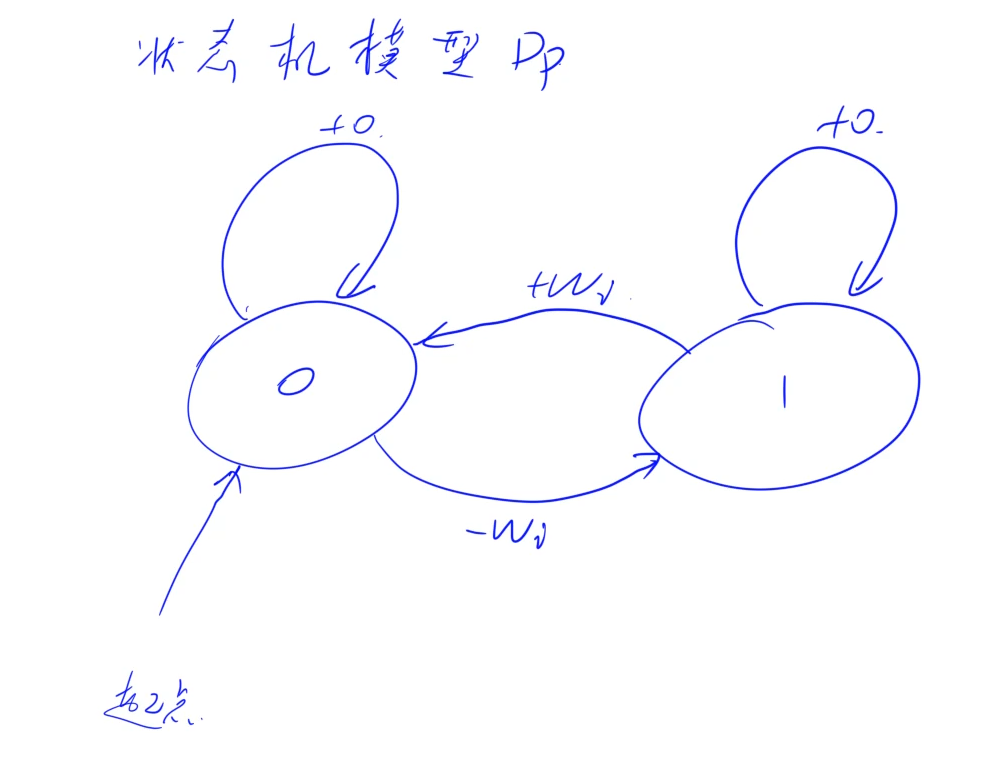 状态机模型 DP
+0.
+0.
+Wi.
0
1
-Wi
起点.